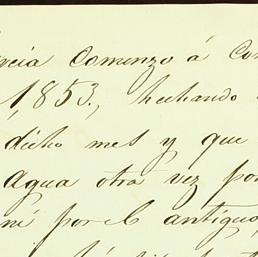 rcia Comenzo á Con
1,853., hechando
dicho mes y que
agua otra vez por
ni por el antiguo,